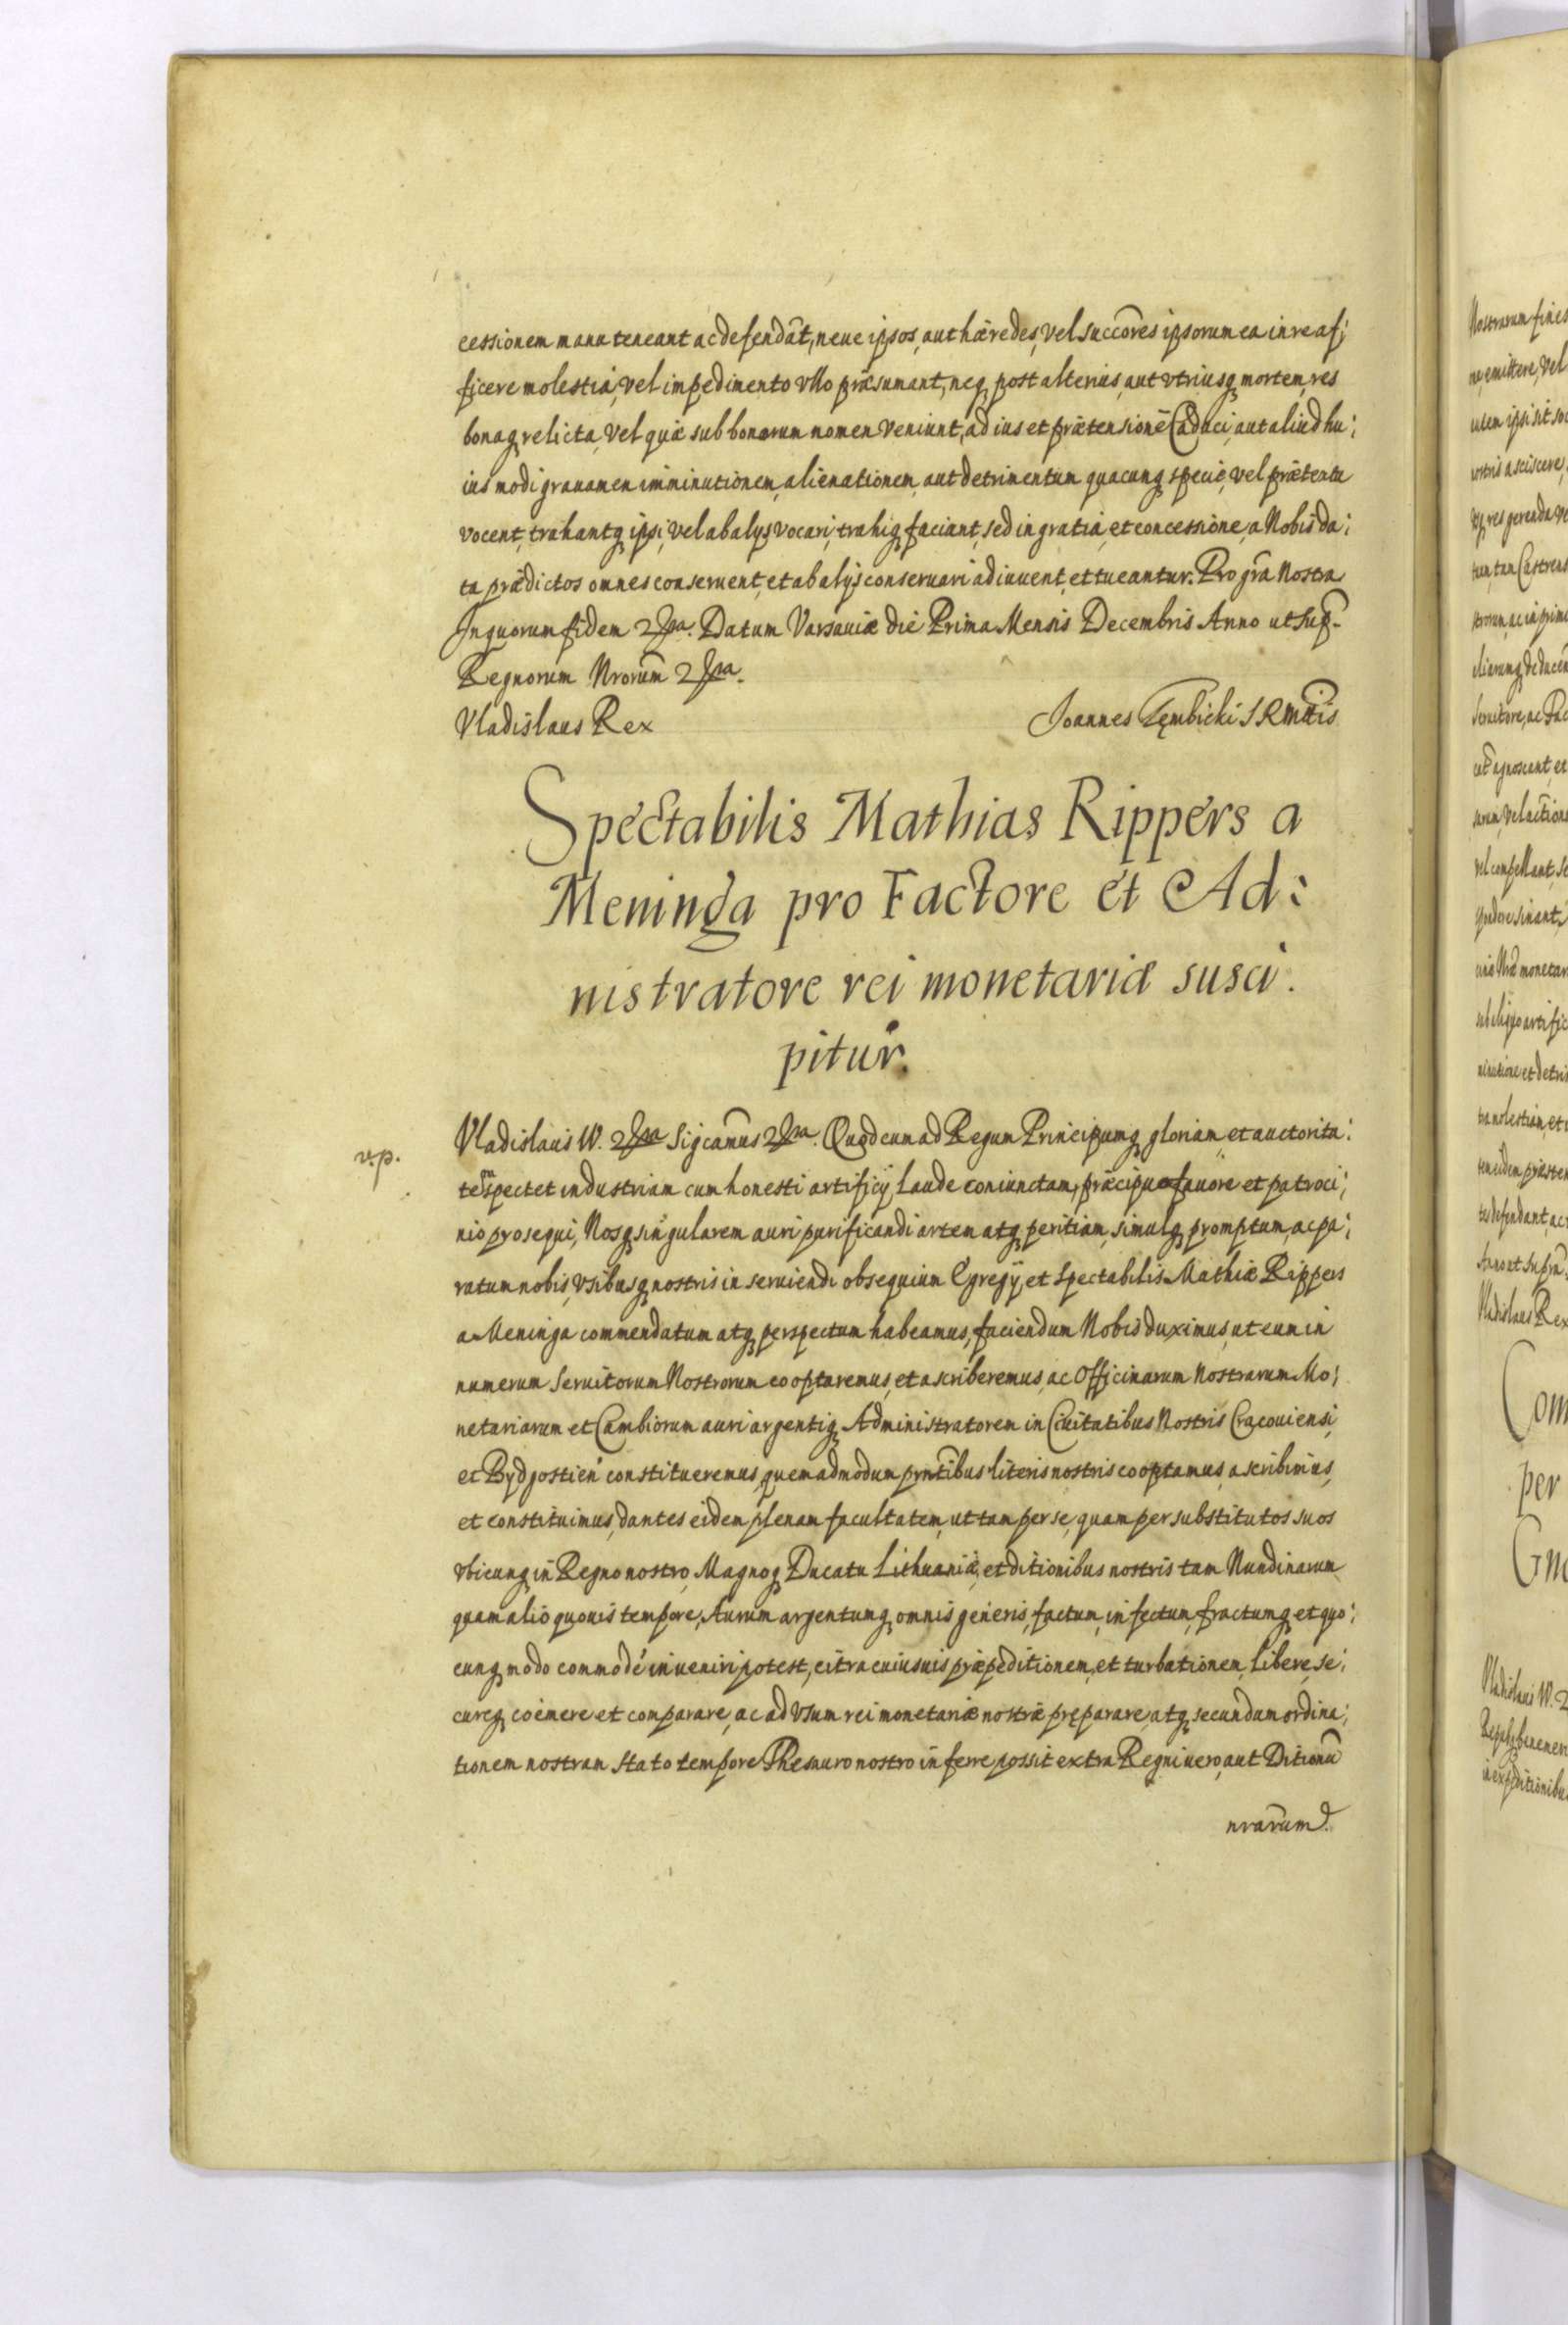 cessionem manuteneant ac defendāt, neue ipsos, aut hæredes, vel succōres ipsorum ea in re af;
ficere molestiâ, vel impedimento vllo præsumant, neq3 post alterius, aut vtriusq3 mortem, res
bonaq3 relicta, vel quæ sub bonorum nomen veniunt, ad ius et prætensionē Caduci, aut aliud hu;
ius modi grauamen imminutionem, alienationem, aut detrimentum quacunq3 specie, vel prætextu
vocent, trahantq3 ipsi, vel ab alijs vocari, trahiq3 faciant, sed in gratiâ, et concessione, a Nobis da;
ta prædictos omnes conseruent, et ab alijs conseruari adiuuent, et tueantur. Pro grā Nostra
In quorum fidem Datum Varsauiæ die Prima Mensis Decembris Anno ut sup̄
Regnorum Nrorum̄
Vladislaus Rex Joannes Gębicki SRMttis
Spectabilis Mathias Rippers a
Meninga pro Factore et Ad:
nistratore rei monetariæ susci:
pitur.
v.p.
Vladislaus W. Sigcāmus Quod cum ad Regum Principumq3 gloriam et auctorita:
tem spectet industriam cum honesti artificij laude coniunctam, præcipuo fauore et patroci;
nio prosequi, Nosq3 singularem auri purificandi artem atq3 peritiam, simulq3 promptum, ac pa;
ratum nobis, vsibusq3 nostris in seruiendi obsequium Egregij, et Spectabilis Mathiæ Rippers
a Meninga commendatum atq3 perspectum habeamus, faciendum Nobis duximus, ut eum in
numerum Seruitorum Nostrorum cooptaremus, et ascriberemus, ac Officinarum Nostrarum Mo;
netariarum et Cambiorum auri argentiq3 Administratorem in Ciuitatibus Nostris Cracouiensi,
et Bydgostien̄ constitueremus, quemadmodum prntībus literis nostris cooptamus, ascribimus,
et constituimus, dantes eidem plenam facultatem, ut tam per se, quam per substitutos suos
vbicunq3 in Regno nostro, Magnoq3 Ducatu Lithuaniæ, et ditionibus nostris tam Nundinarum
quam alio quouis tempore, Aurum argentumq3 omnis generis, factum, infectum, fractumq3 et quo;
cunq3 modo commodé inueniri potest, citra cuiusuis præpeditionem, et turbationem, libere, se;
cureq3 coëmere et comparare, ac ad vsum rei monetariæ nostræ pręparare, atq3 secundum ordina;
tionem nostram stato tempore Thesauro nostro inferre possit extra Regni uero, aut Ditionū
nrarūm